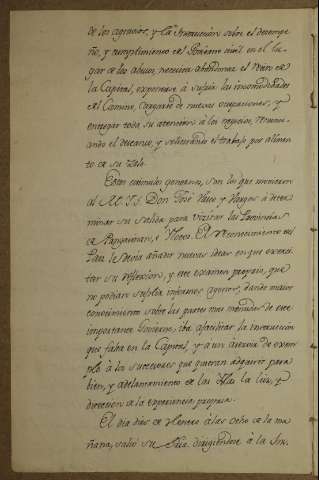 de los agravios, y la Instruccion sobre el desempe-
ño, y cumplimiento del Gobierno civil en el lu-
gar de los abusos, necesita abandonar el Reten de
la Capital, exponerse à sufrir las incomodidades
del Camino, cargarse de nuevas ocupaciones, y
entregar toda su atencion à los negocios, renunci-
ando el descanso, y volviendo el trabajo por alimen-
to de su Zelo.
Estos estimulos generosos, son los que movieron
al M. Y. S. Don José Basco y Vargas à deter-
minar su salida para visitar las Provincias
de Pangasinan, è Ylocos. El reconocimiento del
Pais le devia añadir nuevas ideas en que exerci-
tar su reflexion, y este examen propio, que
no podian suplir informes agenos, dando mayor
conocimiento sobre las partes mas menudas de este
importante Govierno, iba à facilitar la instruccion
que falta en la Capital, y à un mismo de exem-
plo à los sucesores que quieran adquirir para
bien, y adelantamiento de las Yslas la luz, y
direccion de la experiencia propia.
El dia diez de Henero à las ocho de la ma-
ñana, salió su Sria. dirigiendose à la